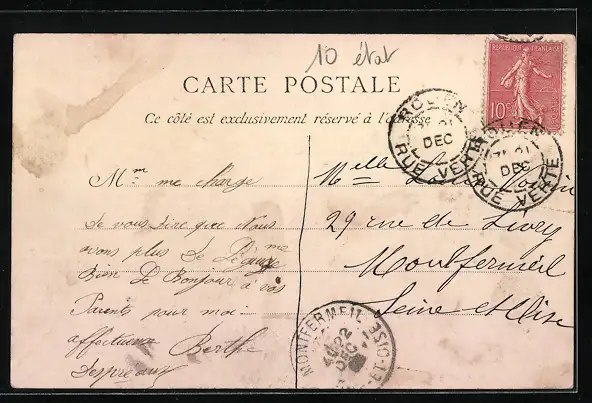 10 état
RÉPUBLIQUE FRANÇAISE
10c
CARTE POSTALE
Ce côté est exclusivement réservé à l'adresse
ROUEN
21
DEC
RUE VERTE
ROUEN
21
DEC
RUE VERTE
Mme me charge
de vous dire que nous
avons plus de
Bien De Bonjour à vos
Parents pour moi
affectueux Berthe
Melle
29 rue de Livry
Montfermeil
Seine et Oise
MONTFERMEIL
22
DEC
ET-OISE